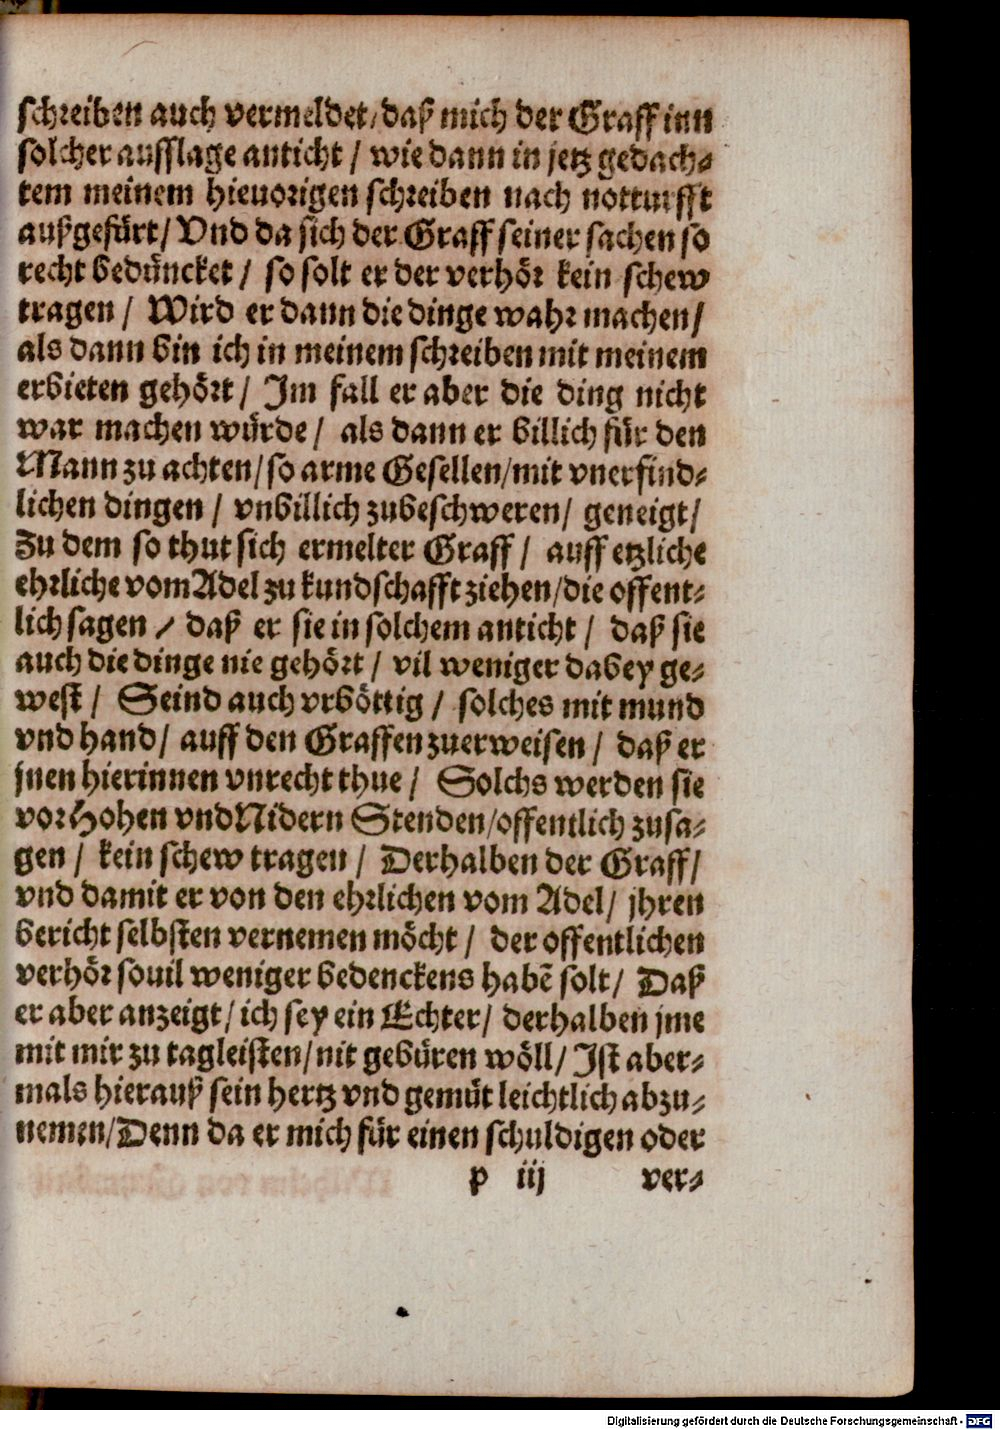 schreiben auch vermeldet/ daß mich der Graff inn
solcher aufflage anticht / wie dann in jetz gedach⸗
tem meinem hieuorigen schreiben nach notturfft
außgefürt/ Vnd da sich der Graff seiner sachen so
recht bedüncket / so solt er der verhör kein schew
tragen / Wird er dann die dinge wahr machen/
als dann bin ich in meinem schreiben mit meinem
erbieten gehört / Im fall er aber die ding nicht
war machen würde / als dann er billich für den
Mann zu achten/ so arme Gesellen/ mit vnerfind⸗
lichen dingen / vnbillich zubeschweren/ geneigt/
Zu dem so thut sich ermelter Graff / auff etzliche
ehrliche vom Adel zu kundschafft ziehen/ die offent⸗
lich sagen / daß er sie in solchem anticht / daß sie
auch die dinge nie gehört / vil weniger dabey ge⸗
west / Seind auch vrböttig / solches mit mund
vnd hand/ auff den Graffen zuerweisen / daß er
jnen hierinnen vnrecht thue / Solchs werden sie
vor Hohen vnd Nidern Stenden/ offentlich zusa⸗
gen / kein schew tragen / Derhalben der Graff/
vnd damit er von den ehrlichen vom Adel/ jhren
bericht selbsten vernemen möcht / der offentlichen
verhör souil weniger bedenckens habē solt / Daß
er aber anzeigt/ ich sey ein Echter/ derhalben jme
mit mir zu tagleisten/ nit gebüren wöll/ Ist aber⸗
mals hierauß sein hertz vnd gemüt leichtlich abzu⸗
nemen/ Denn da er mich für einen schuldigen oder
p iij ver⸗
Digitalisierung gefördert durch die Deutsche Forschungsgemeinschaft - DFG